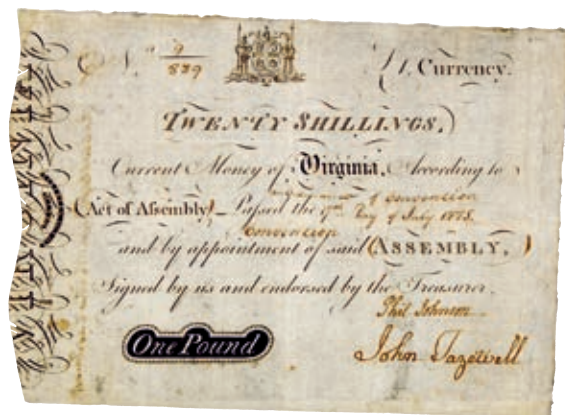 No. 9
839
£1. Currency.
TWENTY SHILLINGS,
Current Money of Virginia, According to
of Convention
(Act of Assembly) Passed the 17th Day of July 1775.
Convention
and by appointment of said (ASSEMBLY,)
Signed by us and endorsed by the Treasurer.
Phil Johnson
One Pound
John Tazewell